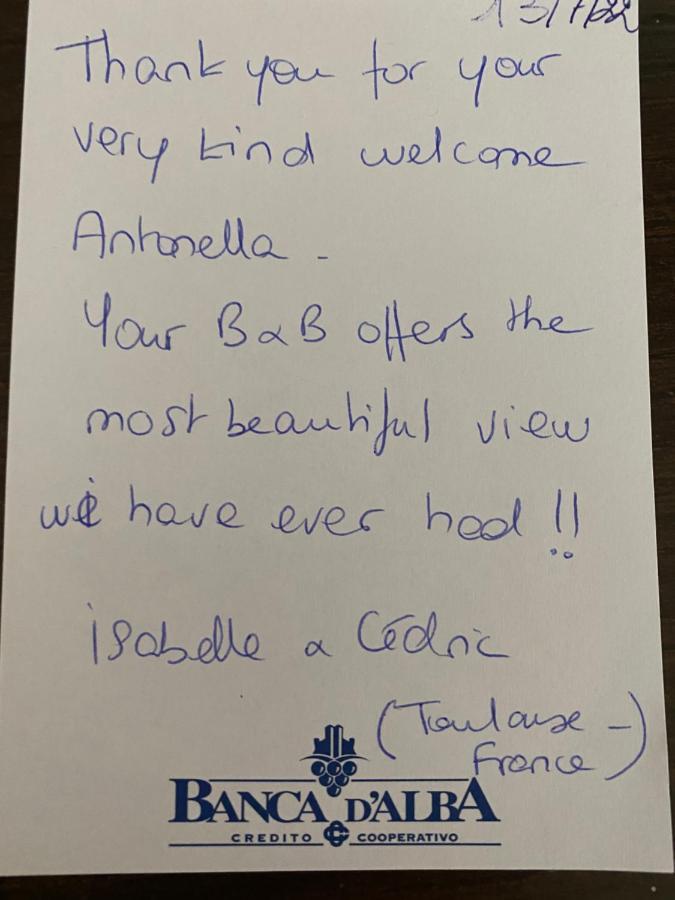 13/7/22
Thank you for your
very kind welcome
Antonella -
Your B & B offers the
most beautiful view
we have ever had !!
isabelle & Cédric
(Toulouse -
France)
BANCA D'ALBA
CREDITO COOPERATIVO